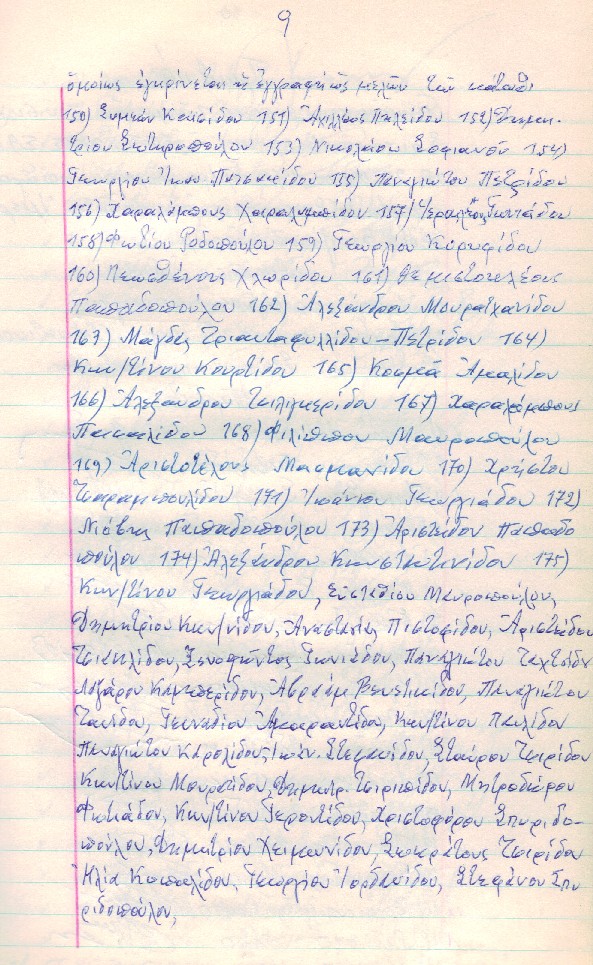 9
ὁμοίως ἐγκρίνεται ἡ ἐγγραφὴ ὡς μελῶν τῶν κάτωθι
150) Συμεὼν Κεϊσίδου 151) Ἀχιλλέως Παλείδου 152) Δημη-
τρίου Σωτηροπούλου 153) Νικολάου Σοφιανοῦ 154)
Γεωργίου Ἰωαν 155) Παναγιώτου Πετρίδου
156) Χαραλάμπους Χαραλαμπίδου 157)
158) Φωτίου Ροδοπούλου 159) Γεωργίου Κορυφίδου
160) Χλωρίδου 161) Θεμιστοκλέους
Παπαδοπούλου 162) Ἀλεξάνδρου Μουρατχανίδου
163) Μάγδας Τριανταφυλλίδου-Πετρίδου 164)
Κων/τίνου Κουρτίδου 165) Κοσμᾶ Ἀμαλίδου
166) Ἀλεξάνδρου Τσιλιγκερίδου 167) Χαραλάμπους
Πασαλίδου 168) Φιλίππου Μαυροπούλου
169) Ἀριστοτέλους Μασμανίδου 170) Χρήστου
171) Ἰωάννου Γεωργιάδου 172)
Νιόβης Παπαδοπούλου 173) Ἀριστείδου Παπαδο
πούλου 174) Ἀλεξάνδρου Κωνσταντινίδου 175)
Κων/τίνου Γεωργιάδου, Εὐσταθίου Μαυροπούλου,
Δημητρίου Κων/νίδου, Ἀναστασίας Πιστοφίδου, Ἀριστείδου
Τσακαλίδου, Ξενοφῶντος Γωνιάδου, Παναγιώτου Ταχτσίδη
Λαζάρου Καμπερίδου, Ἀβραὰμ Βενετικίδου, Παναγιώτου
Γενναδίου Ἀμαραντίδου, Κων/τίνου Παυλίδου
Παναγιώτου Καρολίδου, Ἰωάν. Στεφανίδου, Σταύρου Τσιρίδου
Κων/τίνου Μουρατίδου, Δημητρ. Τσιριπίδου, Μητροδώρου
Φωτιάδου, Κων/τίνου Γεροντίδου, Χριστοφόρου Σπυριδο-
πούλου, Δημητρίου Χειμωνίδου, Σωκράτους Τσιρίδου
Ἠλία Κοπαλίδου, Γεωργίου Ἰορδανίδου, Στεφάνου Σπυ
ριδοπούλου,